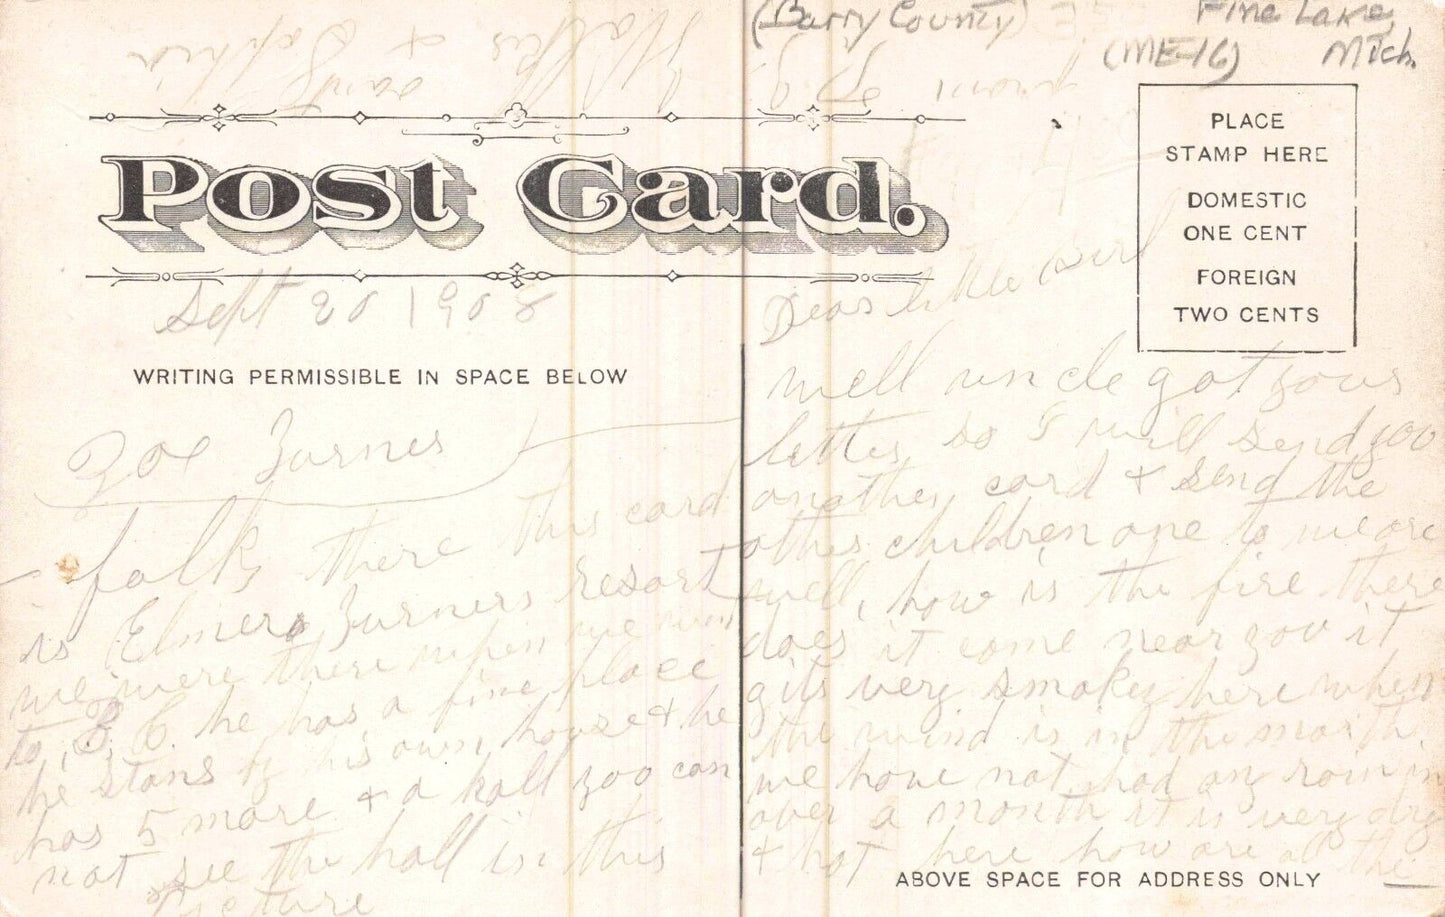 (Barry County)
Fine Lake,
(ME-16) Mich.
from
Walkes & Sophia
Post Card.
PLACE
STAMP HERE
DOMESTIC
ONE CENT
FOREIGN
TWO CENTS
Sept 20 1908
WRITING PERMISSIBLE IN SPACE BELOW
Dear little Girl
well uncle got your
letter so I will send you
another card & send the
other children one to we are
well, how is the fire there
does it come near you it
gits very smoky here when
the wind is in the north.
we have not had any rain in
over a month it is very dry
& hot here how are all the
Zoe Zurnes
folks there this card
is Elmer Zurners resort
we were there when we run
to B. C. he has a fine place
he stans by his own house & he
has 5 more & a hall you can
not see the hall in this
Picture
ABOVE SPACE FOR ADDRESS ONLY